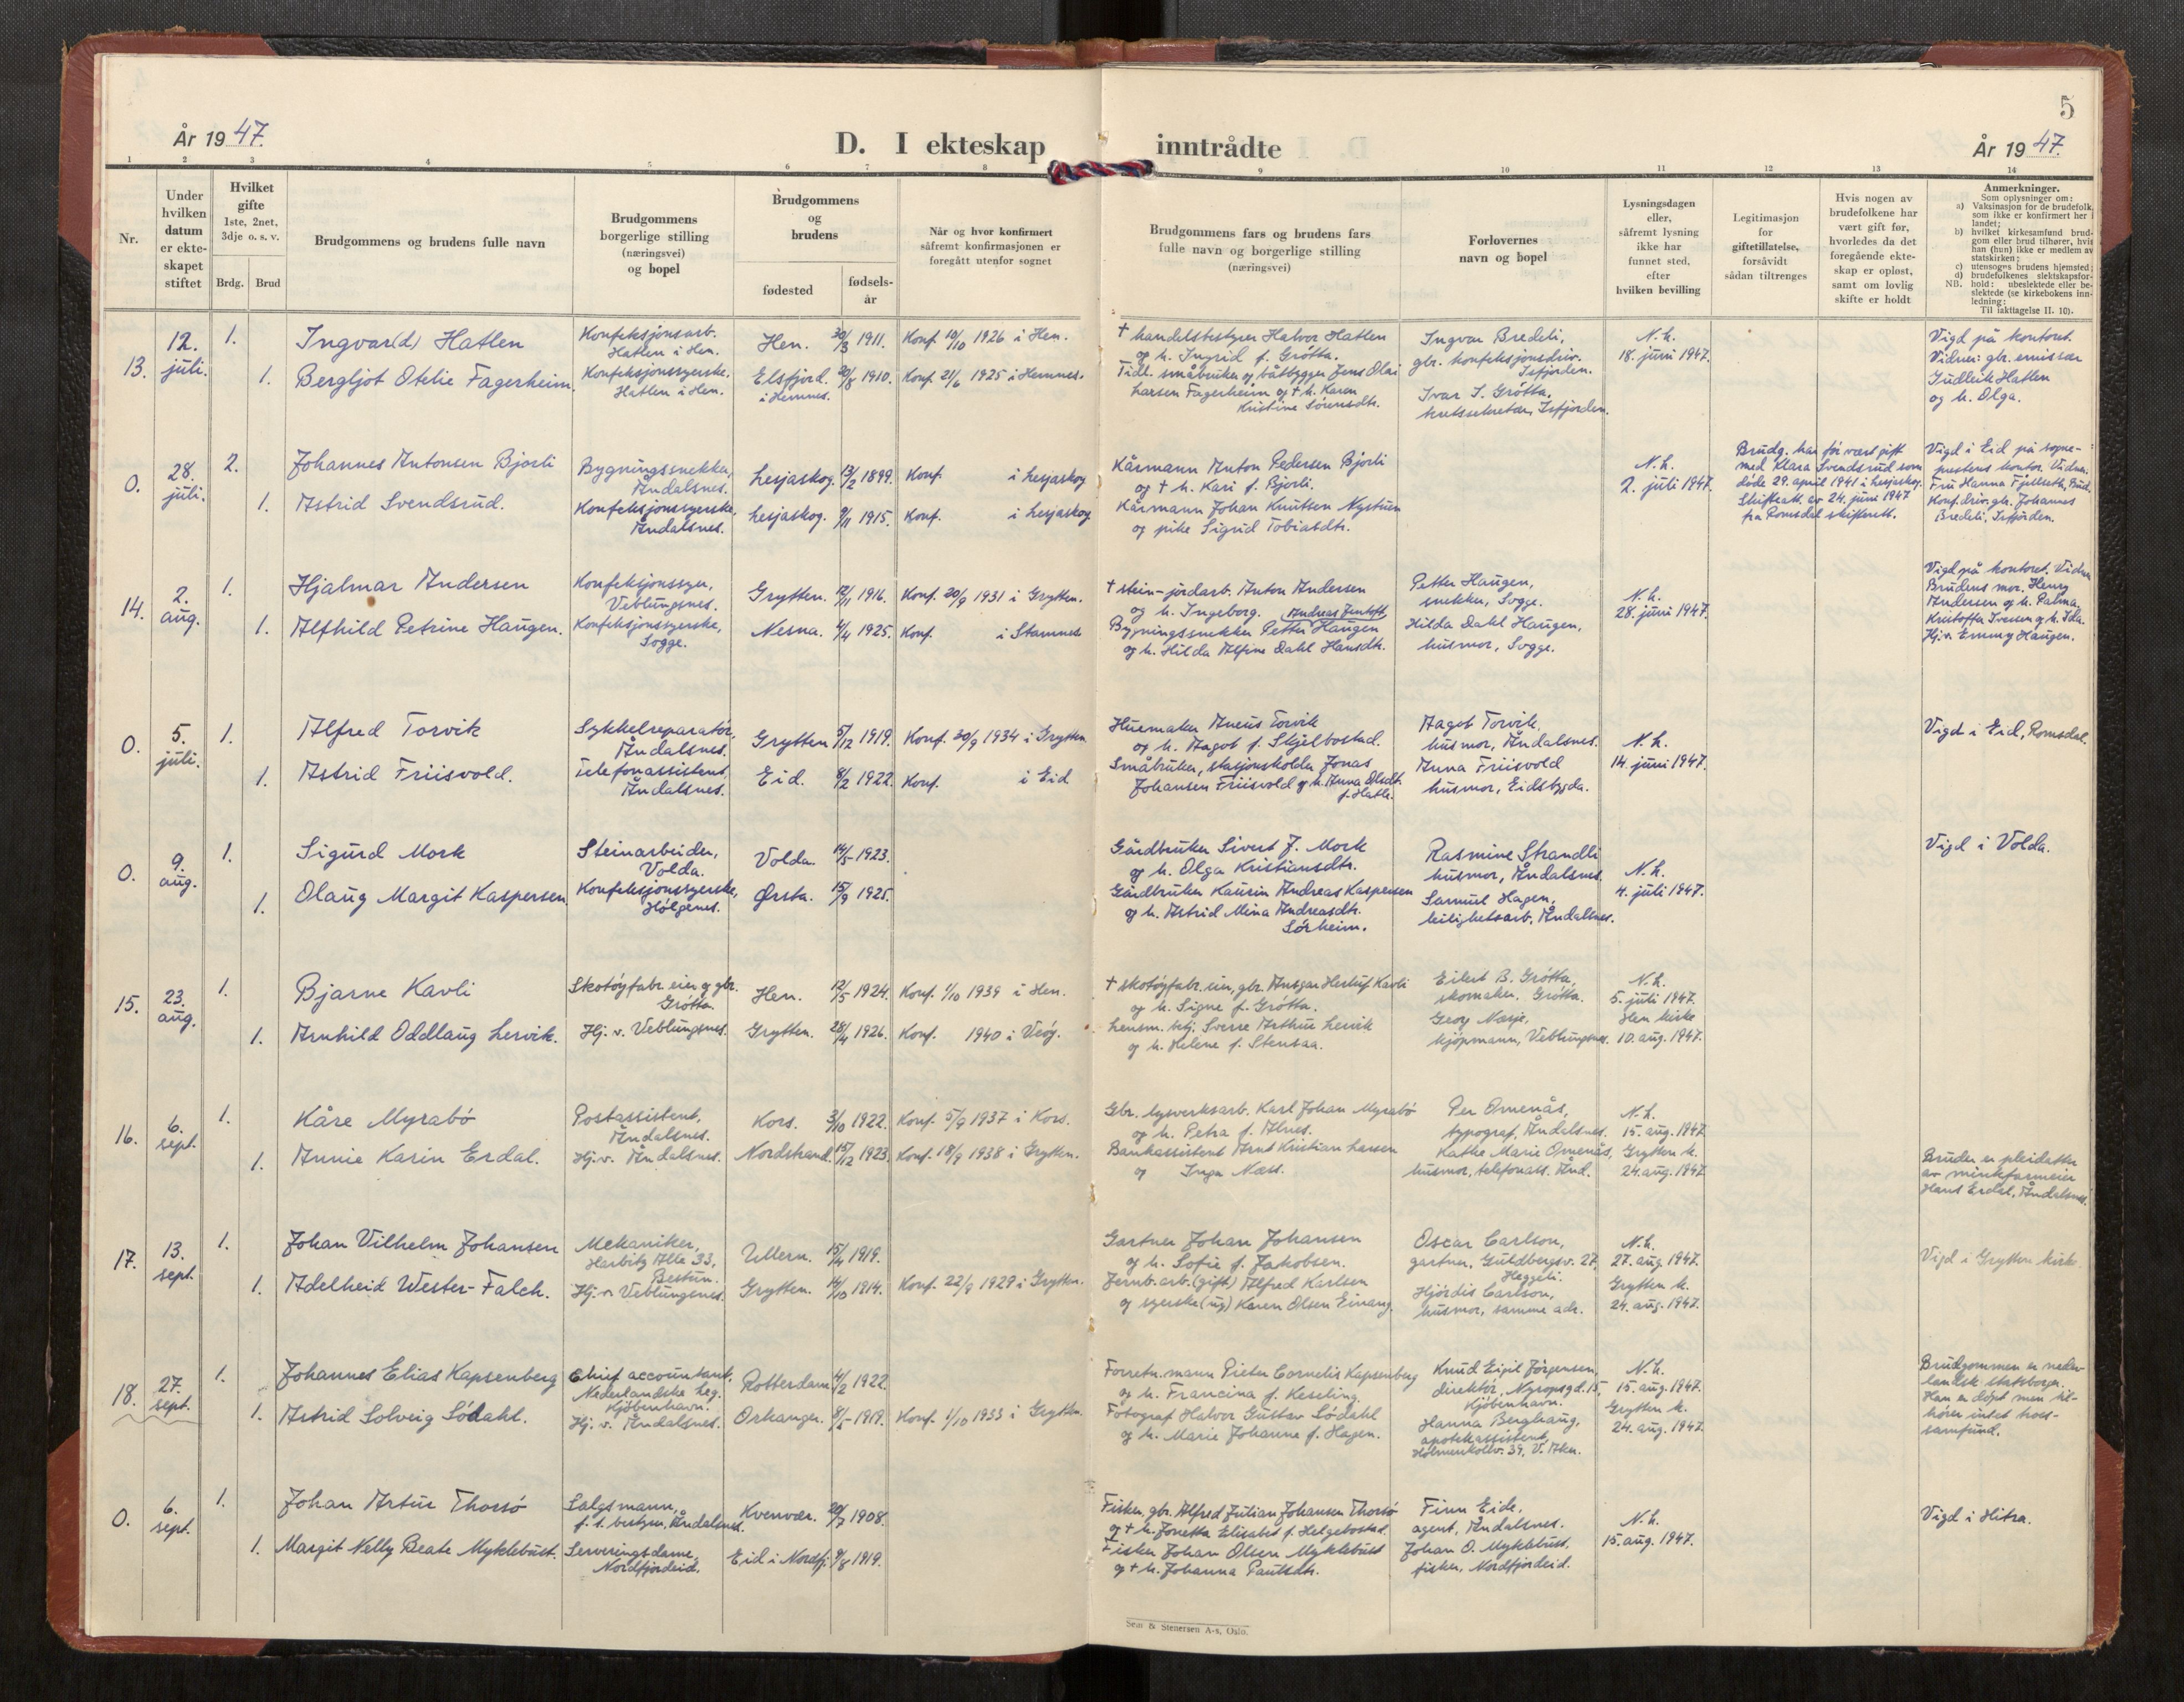 5
År 1947.
D. I ekteskap inntrådte
År 1947.
1 2 3 4 5 6 7 8 9 10 11 12 13 14
Nr.
Under hvilken datum er ekte-skapet stiftet
Hvilket gifte 1ste, 2net, 3dje o. s. v.
Brdg. Brud
Brudgommens og brudens fulle navn
Brudgommens borgerlige stilling (næringsvei) og bopel
Brudgommens og brudens
fødested
fødsels-år
Når og hvor konfirmert såfremt konfirmasjonen er foregått utenfor sognet
Brudgommens fars og brudens fars fulle navn og borgerlige stilling (næringsvei)
Forlovernes navn og bopel
Lysningsdagen eller, såfremt lysning ikke har funnet sted, efter hvilken bevilling
Legitimasjon for giftetillatelse, forsåvidt sådan tiltrenges
Hvis nogen av brudefolkene har vært gift før, hvorledes da det foregående ekte-skap er opløst, samt om lovlig skifte er holdt
Anmerkninger.
Som oplysninger om:
a) Vaksinasjon for de brudefolk, som ikke er konfirmert her i landet;
b) hvilket kirkesamfund brud-gom eller brud tilhører, hvis han (hun) ikke er medlem av statskirken;
c) utensogns brudens hjemsted;
d) brudefolkenes slektskapsfor-hold: ubeslektede eller be-slektede (se kirkebokens inn-ledning:
NB.
Til iakttagelse II. 10).
13. 12. juli. 1.
Ingvar(d) Hatlen
Konfeksjonsarb.
Hatlen i Hen.
Hen. 30/3 1911. Konf. 10/10 1926 i Hen.
† handelsbestyrer Halvor Hatlen
og h. Ingrid f. Grøtta.
Ingvar Bredeli,
gbr. konfeksjonsdriv.
Isfjorden.
N.L.
18. juni 1947.
Vigd på kontoret.
Vidner: gbr. emissær
Gudleik Hatlen
og h. Olga.
1. Bergljot Otelie Fagerheim
Konfeksjonssyerske.
Hatlen i Hen.
Elsfjord. 20/8 1910. Konf. 21/6 1925 i Hemnes.
i Hemnes.
Tidl. småbruker og båtbygger Jens Olai
Larsen Fagerheim og † h. Karen
Kristine Sørensdtr.
Ivar I. Grøtta,
Isfjorden.
0. 28. juli. 2.
Johannes Antonsen Bjorli
Bygningssnekker,
Åndalsnes.
Lesjaskog. 13/2 1899. Konf. i Lesjaskog
Kårmann Anton Pedersen Bjorli
og † h. Kari f. Bjorli.
N.L.
2. juli 1947.
Brudg. har før vært gift
med Klara Svendsrud som
døde 29. april 1941 i Lesjaskog.
Skifteatt. av 24. juni 1947
fra Romsdal skifterett.
Vigd i Eid på sogne-
prestens kontor. Vidner.
Fru Hanna Fjelseth,
Konf.driv. gb. Johannes
Bredeli, Isfjorden.
1. Astrid Svendsrud.
Konfeksjonssyerske,
Åndalsnes.
Lesjaskog. 9/11 1915. Konf. i Lesjaskog
Kårmann Johan Knutsen Nystuen
og pike Sigrid Tobiasdtr.
14. 2. aug. 1.
Hjalmar Andersen
Konfeksjonssyer,
Veblungsnes.
Grytten. 12/11 1916. Konf. 20/9 1931 i Grytten.
† stein-jordarb. Anton Andersen
og h. Ingeborg.
Petter Haugen,
snekker, Sogge.
N.L.
28. juni 1947.
Vigd på kontoret. Vidner
Brudens mor. Henry
Andersen og h. Palma.
Kristoffer Iversen og h. Ida.
Hj.v. Emmy Haugen.
1. Alfhild Petrine Haugen.
Konfeksjonssyerske,
Sogge.
Nesna. 4/4 1925. Konf. i Stamnes
Andreas Jentoft
Bygningssnekker Petter Haugen
og h. Hilda Alfine Dahl Hansdtr.
Hilda Dahl Haugen,
husmor, Sogge.
0. 5. juli. 1.
Alfred Torvik
Sykkelreparatør,
Åndalsnes.
Grytten 5/12 1919. Konf. 30/9 1934 i Grytten
Huemaker Aneus Torvik
og h. Aagot f. Skjelbostad.
Aagot Torvik,
husmor, Åndalsnes.
N.L.
14. juni 1947.
Vigd i Eid, Romsdal.
1. Astrid Friisvold.
Telefonassistent,
Åndalsnes.
Eid. 8/2 1922. Konf. i Eid
Småbruker, stasjonsholder Jonas
Johansen Friisvold og h. Anna Olsdtr.
Anna Friisvold
husmor, Eidsbygda.
0. 9. aug. 1.
Sigurd Mork
Steinarbeider,
Volda.
Volda. 14/5 1923.
Gårdbruker Sivert J. Mork
og h. Olga Kristiansdtr.
Rasmine Strandli
husmor, Åndalsnes.
N.L.
4. juli 1947.
Vigd i Volda.
1. Olaug Margit Kaspersen.
Konfeksjonssyerske,
Holgenes.
Ørsta. 15/9 1925.
Gårdbruker Laurin Andreas Kaspersen
og h. Astrid Mina Andreasdtr.
Sørheim.
Samuel Hagen,
leilighetsarb. Åndalsnes.
15. 23. aug. 1.
Bjarne Kavli
Skotøyfabr. eier og gbr.
Grøtta.
Hen. 12/5 1924. Konf. 1/10 1939 i Hen.
† skotøyfabr. eier, gbr. Ansgar Herluf Kavli
og h. Signe f. Grøtta.
Eilert B. Grøtta,
skomaker. Grøtta.
N.L.
5. juli 1947.
Hen kirke
10. aug. 1947.
1. Arnhild Oddlaug Lervik.
Hj. v. Veblungsnes.
Grytten. 28/4 1926. Konf. 1940 i Veøy.
Lensm. betj. Sverre Arthur Lervik
og h. Helene f. Stensaa.
Georg Næsje,
kjøpmann, Veblungsnes.
16. 6. sept. 1.
Kåre Myrabø
Postassistent,
Åndalsnes.
Kors. 3/10 1922. Konf. 5/9 1937 i Kors.
Gbr. lysverksarb. Karl Johan Myrabø
og h. Petra f. Alnes.
Per Omenås,
typograf, Åndalsnes.
N.L.
15. aug. 1947
Grytten k.
24. aug. 1947
1. Annie Karin Erdal.
Hj.v. Åndalsnes.
Nordstrand. 15/12 1923. Konf. 18/9 1938 i Grytten.
Bankassistent Arnt Kristian Larsen
og Inga Næss.
Kathe Marie Omenås,
husmor, telefonass. Ånd.
Bruden er pleidatter
av minkfarmeier
Hans Erdal, Åndalsnes.
17. 13. sept. 1.
Johan Vilhelm Johansen
Mekaniker,
Harbitz Alle 33,
Bestun.
Ullern. 15/4 1919.
Gartner Johan Johansen
og h. Sofie f. Jakobsen.
Oscar Carlson,
gartner, Guldbergsv. 27,
Heggeli.
N.L.
27. aug. 1947.
Grytten k.
24. aug. 1947.
Vigd i Grytten kirke.
1. Adelheid Wester-Falch.
Hj. v. Veblungsnes.
Grytten. 14/10 1914. Konf. 22/9 1929 i Grytten.
Jernb.arb. (gift) Alfred Karlsen
og syerske (ug) Karen Olsen Einang.
Hjørdis Carlson,
husmor, samme adr.
18. 27. sept. 1.
Johannes Elias Kapsenberg
Chief accountant,
Nederlandske leg.
Kjøbenhavn.
Rotterdam 4/2 1922.
Forretn.mann Pieter Cornelis Kapsenberg
og h. Francina f. Keseling
Knud Eigil Jørgensen,
direktør, Nyropsgd. 15,
Kjøbenhavn.
N.L.
15. aug. 1947.
Grytten k.
24. aug. 1947.
Brudgommen er neder-
landsk statsborger.
Han er døpt men til-
hører intet tros-
samfund.
1. Astrid Solveig Sødahl.
Hj. v. Åndalsnes.
Orkanger. 8/5 1919. Konf. 1/10 1933 i Grytten.
Fotograf Halvor Gustav Sødahl
og h. Marie Johanne f. Hagen.
Hanna Berghaug,
apotekassistent,
Holmenkollv. 39, V. Aker.
0. 6. sept. 1.
Johan Artur Thorsø
Salgsmann,
f. t. bestyrer, Åndalsnes.
Kvenvær. 20/7 1908.
Fisker, gbr. Alfred Julian Johansen Thorsø
og † h. Jonetta Elisabet f. Helgebostad.
Finn Eide,
agent, Åndalsnes.
N.L.
15. aug. 1947.
Vigd i Hitra.
1. Margit Nelly Beate Myklebust.
Serveringsdame,
Nordfjordeid.
Eid i Nordfj. 9/8 1919.
Fisker Johan Olsen Myklebust
og † h. Johanna Paulsdtr.
Johan O. Myklebust,
fisker, Nordfjordeid.
Sem & Stenersen A-s, Oslo.